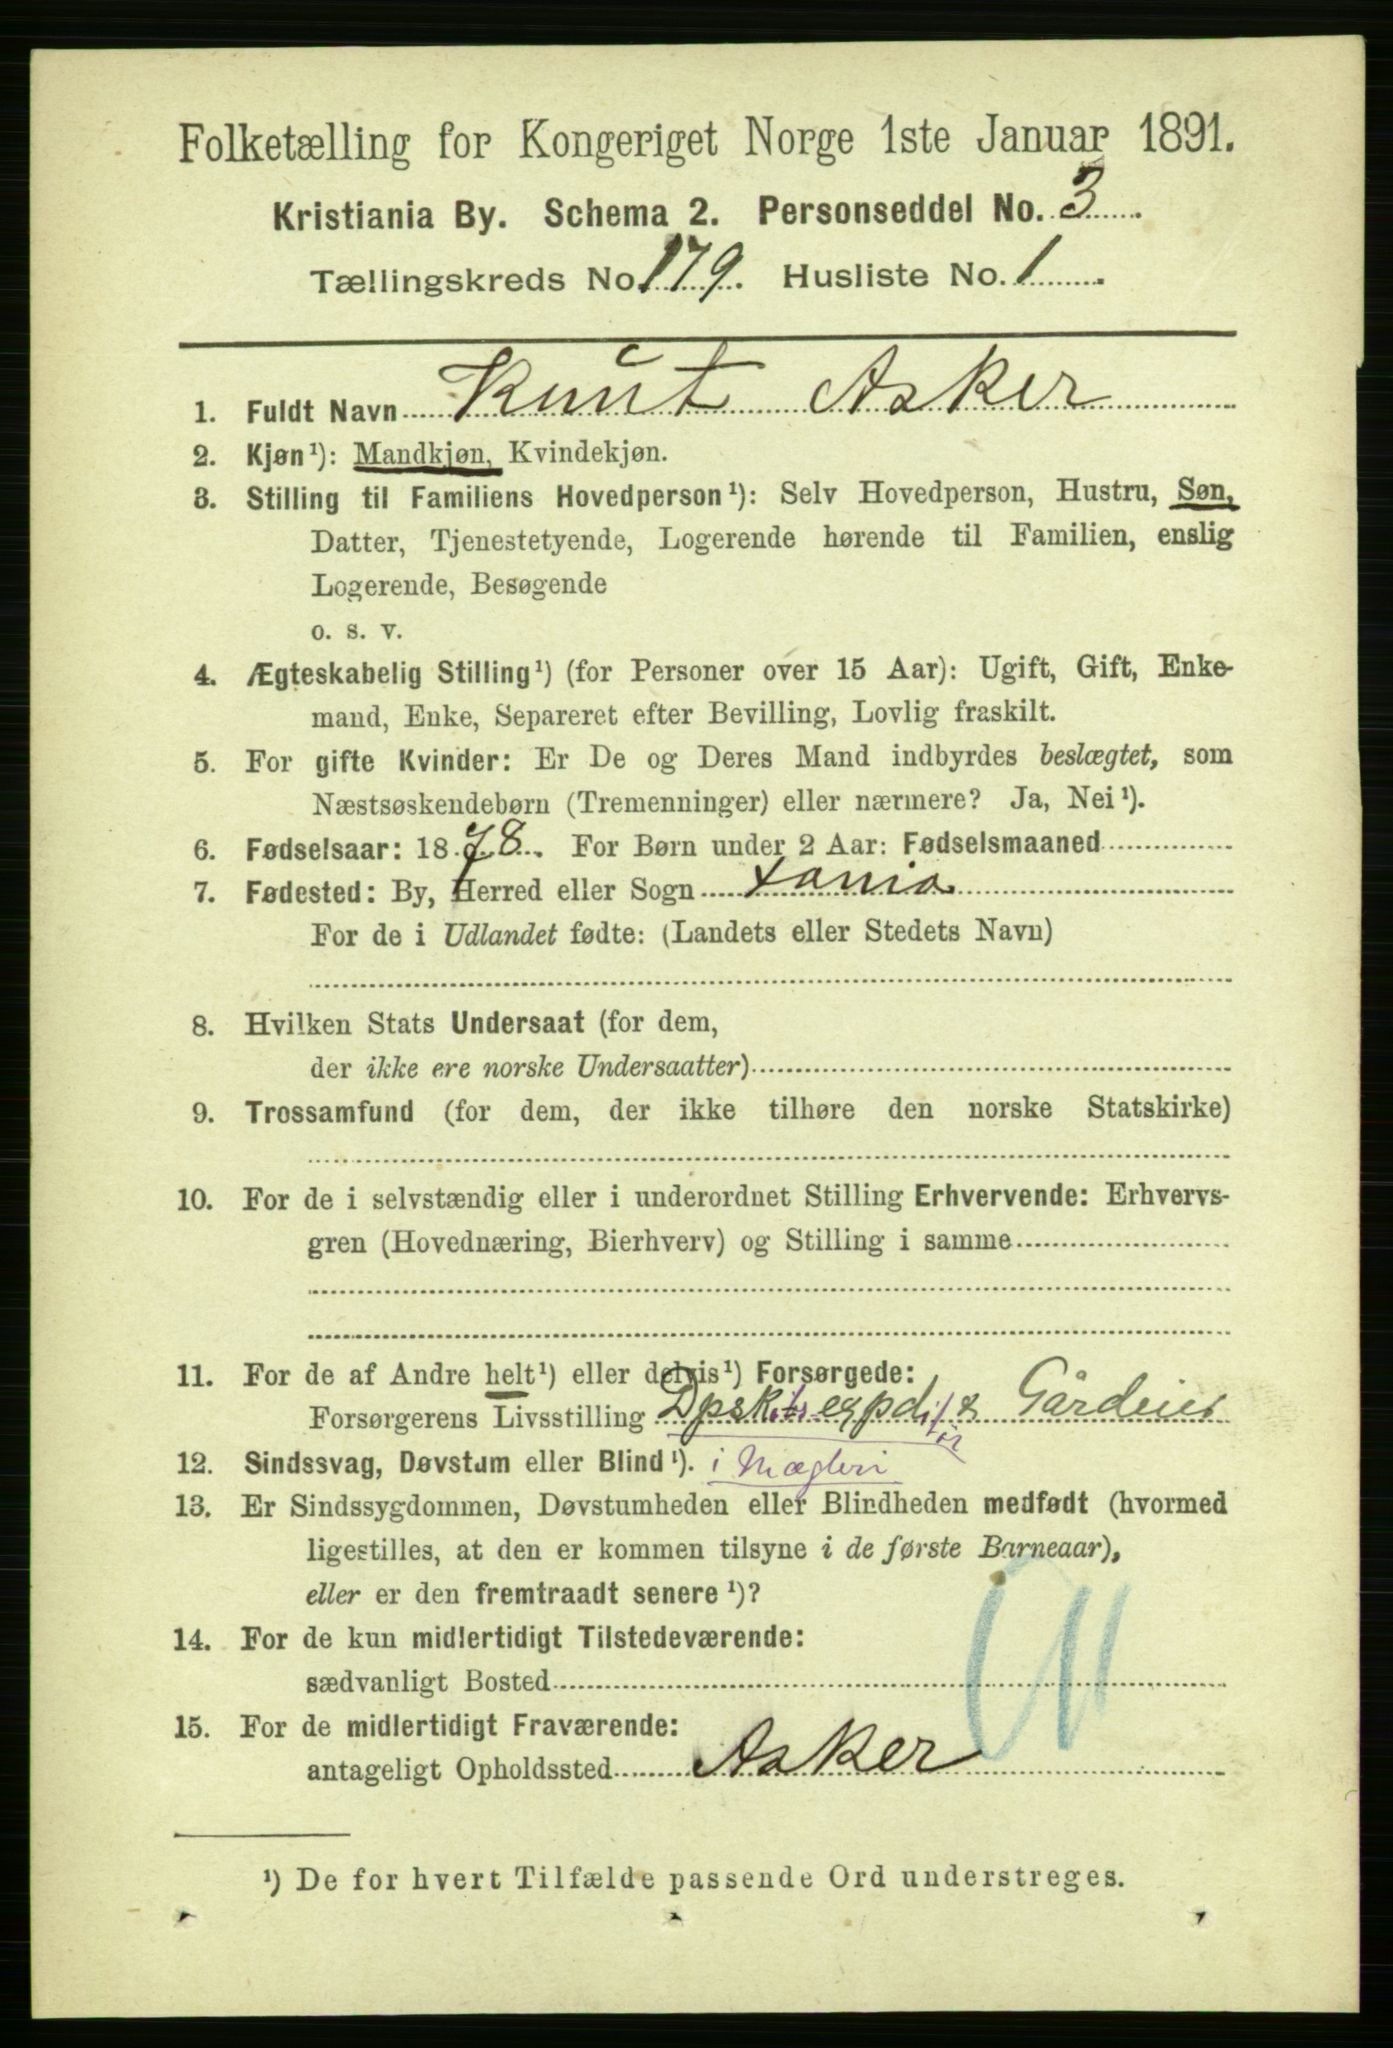 Folketælling for Kongeriget Norge 1ste Januar 1891.
Kristiania By. Schema 2. Personseddel No. 3
Tællingskreds No. 179. Husliste No. 1
1. Fuldt Navn Knut Asker
2. Kjøn¹): Mandkjøn, Kvindekjøn.
3. Stilling til Familiens Hovedperson¹): Selv Hovedperson, Hustru, Søn,
Datter, Tjenestetyende, Logerende hørende til Familien, enslig
Logerende, Besøgende
o. s. v.
4. Ægteskabelig Stilling¹) (for Personer over 15 Aar): Ugift, Gift, Enke-
mand, Enke, Separeret efter Bevilling, Lovlig fraskilt.
5. For gifte Kvinder: Er De og Deres Mand indbyrdes beslægtet, som
Næstsøskendebørn (Tremenninger) eller nærmere? Ja, Nei¹).
6. Fødselsaar: 1878. For Børn under 2 Aar: Fødselsmaaned
7. Fødested: By, Herred eller Sogn Xania
For de i Udlandet fødte: (Landets eller Stedets Navn)
8. Hvilken Stats Undersaat (for dem,
der ikke ere norske Undersaatter)
9. Trossamfund (for dem, der ikke tilhøre den norske Statskirke)
10. For de i selvstændig eller i underordnet Stilling Erhvervende: Erhvervs-
gren (Hovednæring, Bierhverv) og Stilling i samme
11. For de af Andre helt¹) eller delvis¹) Forsørgede:
Forsørgerens Livsstilling & Gårdeier
12. Sindssvag, Døvstum eller Blind¹). i Mægleri
13. Er Sindssygdommen, Døvstumheden eller Blindheden medfødt (hvormed
ligestilles, at den er kommen tilsyne i de første Barneaar),
eller er den fremtraadt senere¹)?
14. For de kun midlertidigt Tilstedeværende:
sædvanligt Bosted
15. For de midlertidigt Fraværende:
antageligt Opholdssted Asker
¹) De for hvert Tilfælde passende Ord understreges.